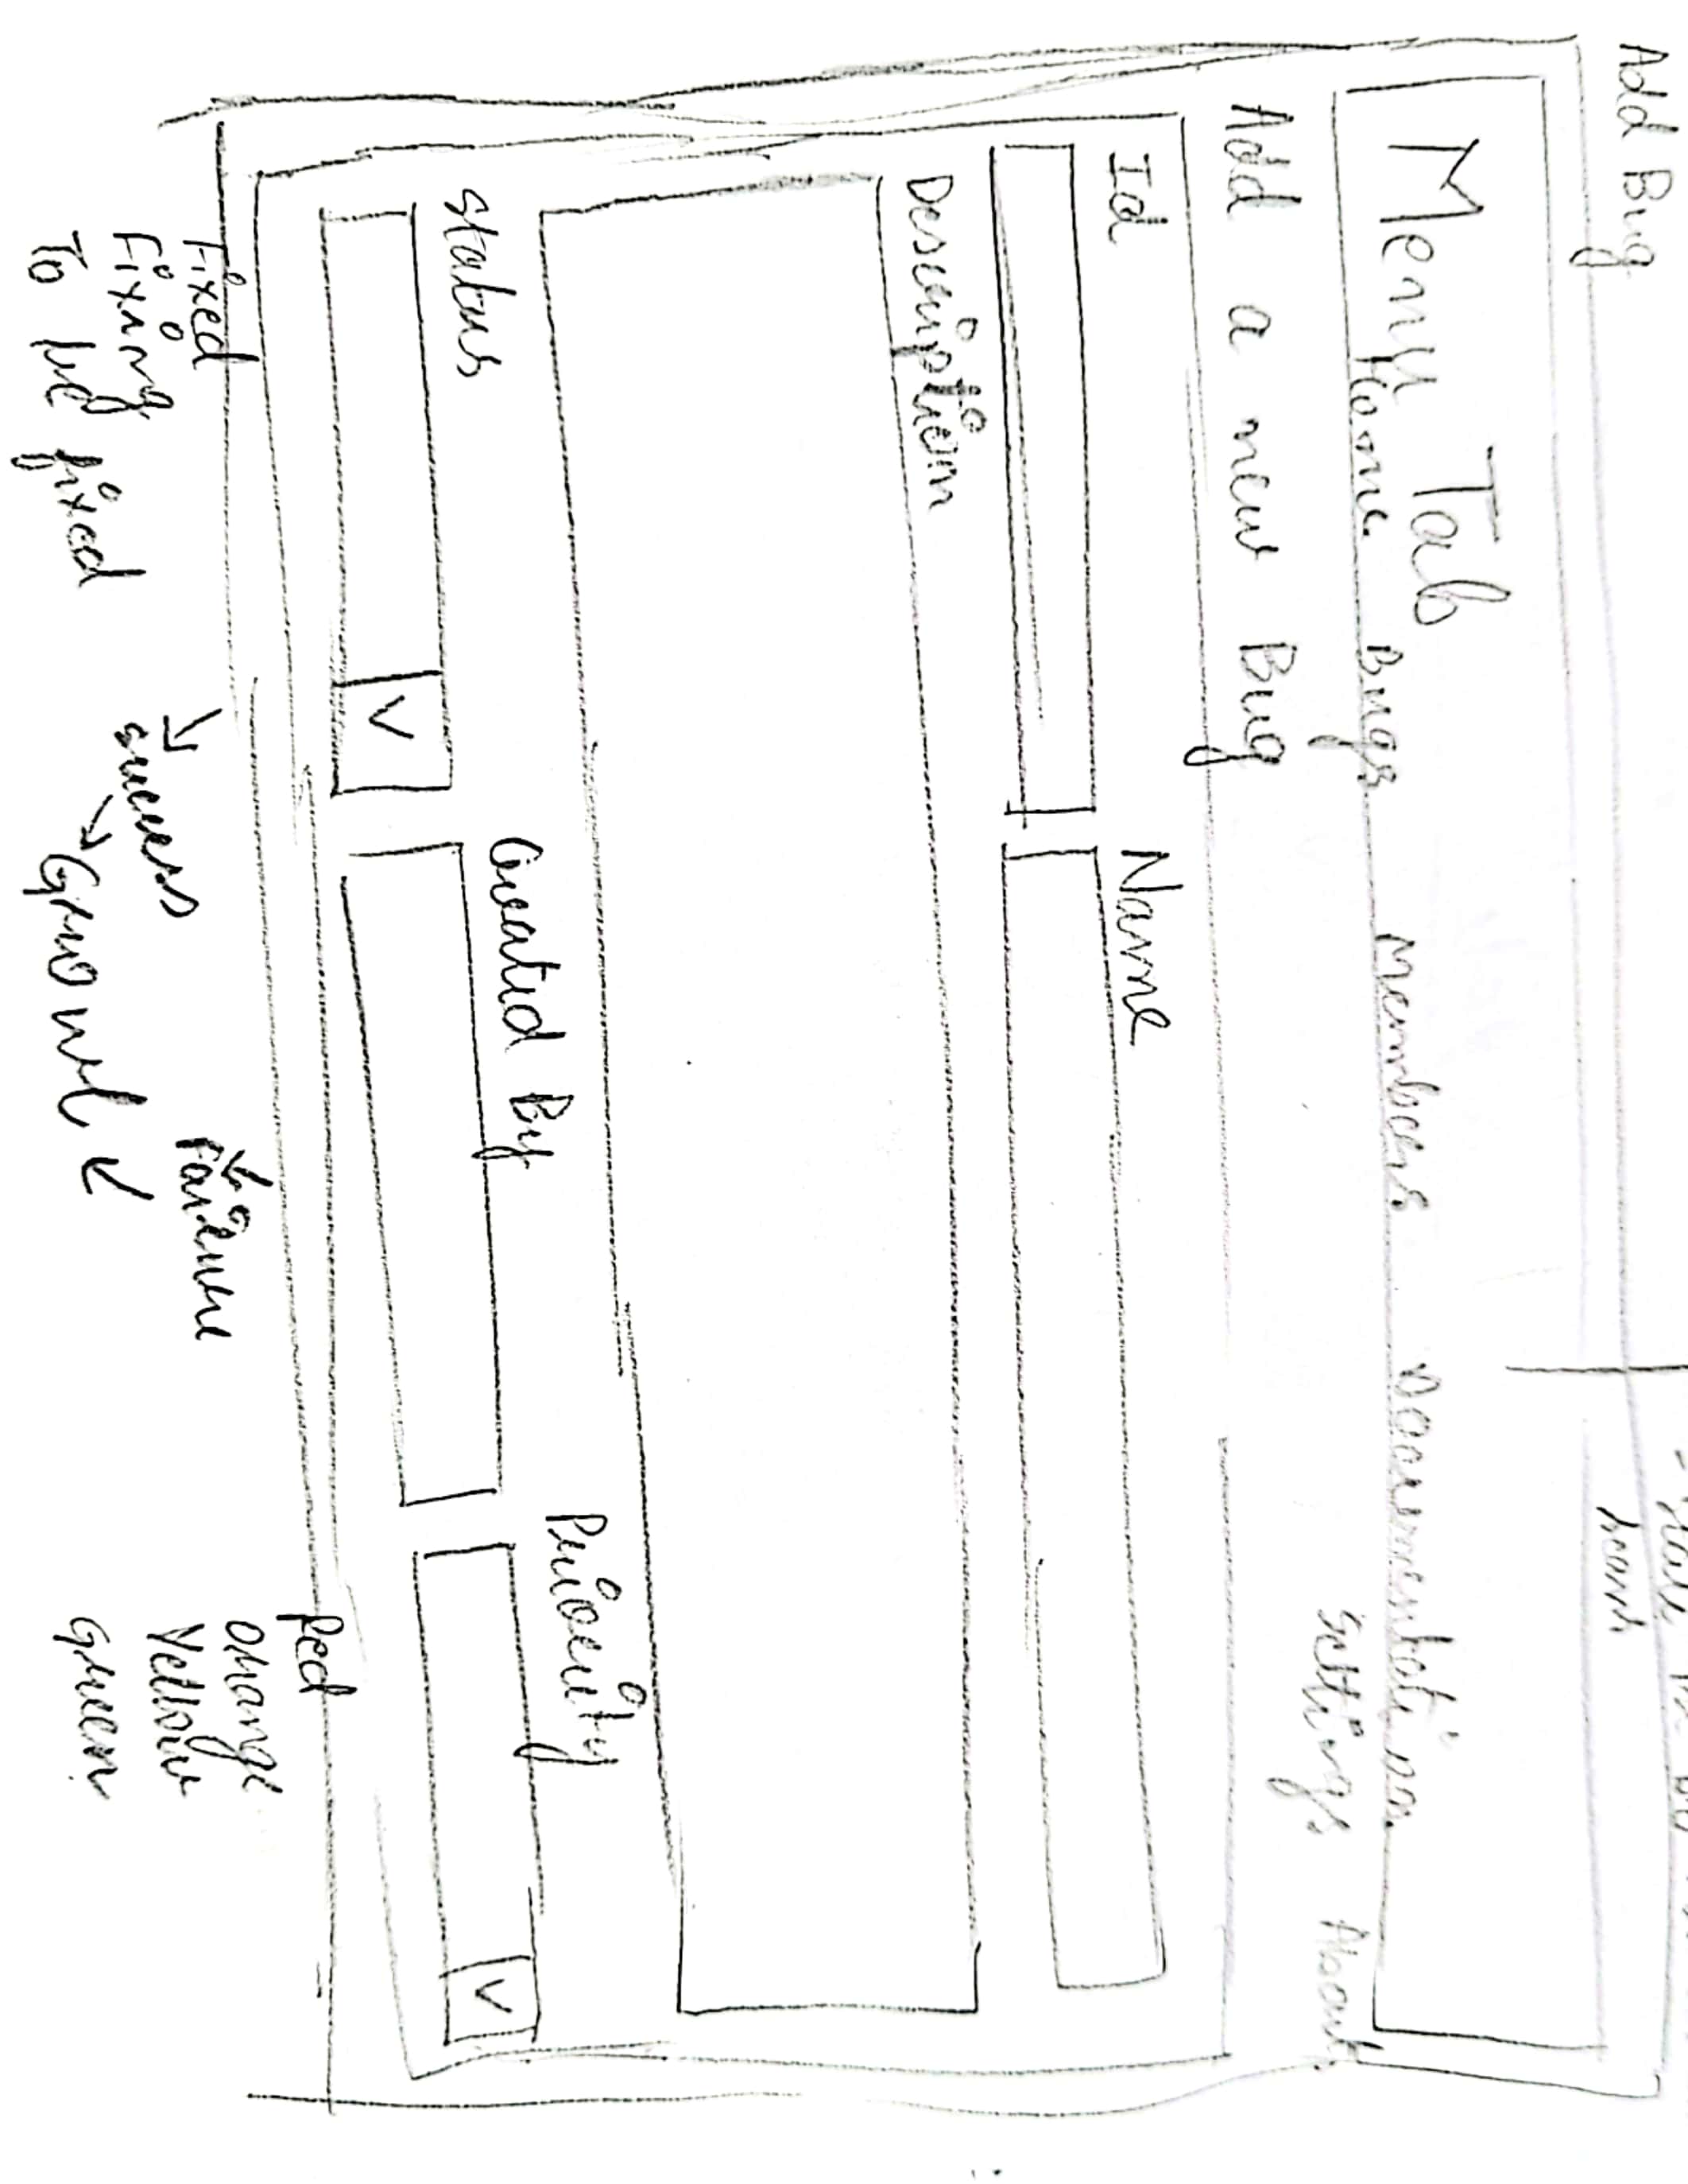 Add Bug
Menu Tab
Home Bugs Members Documentation
Settings About
Add a new Bug
Id Name
Description
Status Created By Priority
V V
Fixed
Fixing
To be fixed
success
Growl
Failure
Red
Orange
Yellow
Green